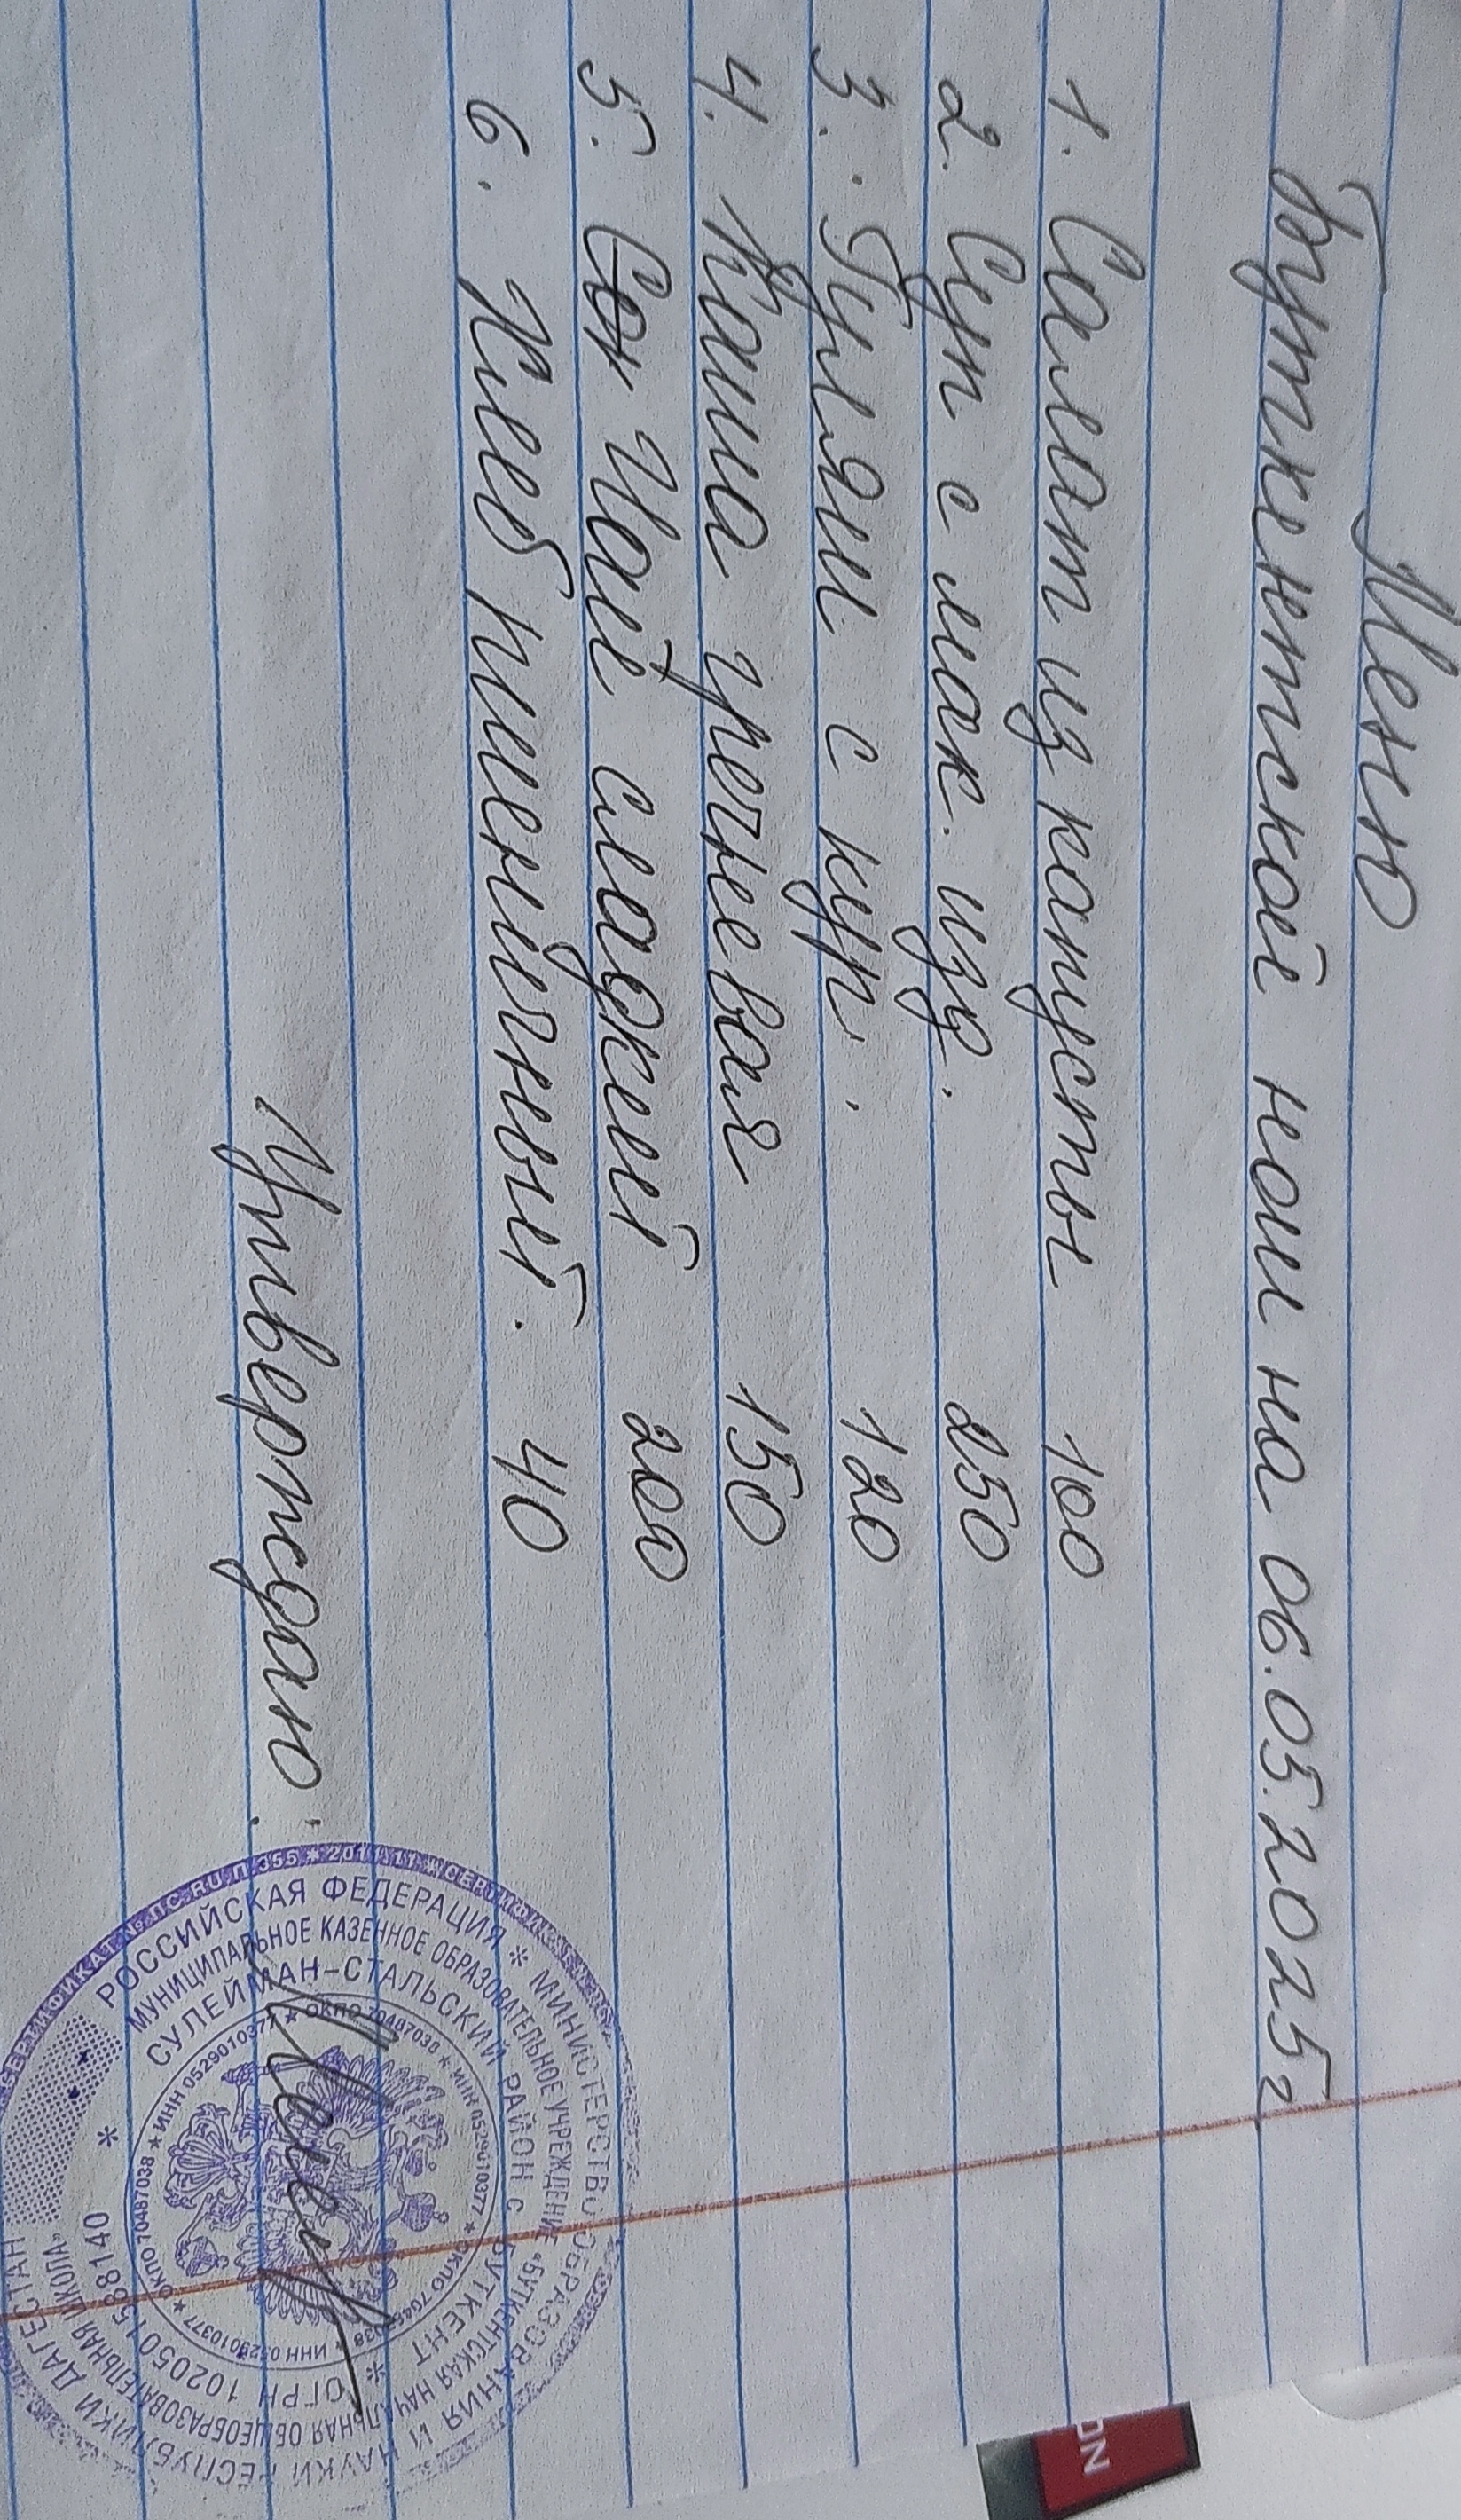 Меню
Буткентской нош на 06.05.2025г
1. Салат из капусты 100
2. Суп с мак. изд. 250
3. Гуляш с кур. 120
4. Каша гречневая 150
5. Сок Чай сладкий 200
6. Хлеб пшеничный. 40
Утверждаю:
РОССИЙСКАЯ ФЕДЕРАЦИЯ * МИНИСТЕРСТВО ОБРАЗОВАНИЯ И НАУКИ РЕСПУБЛИКИ ДАГЕСТАН
МУНИЦИПАЛЬНОЕ КАЗЕННОЕ ОБРАЗОВАТЕЛЬНОЕ УЧРЕЖДЕНИЕ «БУТКЕНТСКАЯ НАЧАЛЬНАЯ ОБЩЕОБРАЗОВАТЕЛЬНАЯ ШКОЛА»
СУЛЕЙМАН-СТАЛЬСКИЙ РАЙОН С. БУТКЕНТ * ОГРН 1020501588140 *
ИНН 0529010377 * ОКПО 70487038 * ИНН 0529010377 * ОКПО 70487038 * ИНН 0529010377 * ОКПО 70487038 *
ON